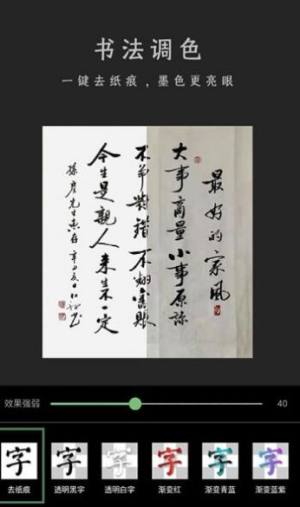 书法调色
一键去纸痕，墨色更亮眼
最好的家风
大事商量小事原谅
不争对错不翻旧账
今生是亲人来生不一定
效果强弱
40
字
字
字
字
字
字
去纸痕
透明黑字
透明白字
渐变红
渐变青蓝
渐变蓝紫